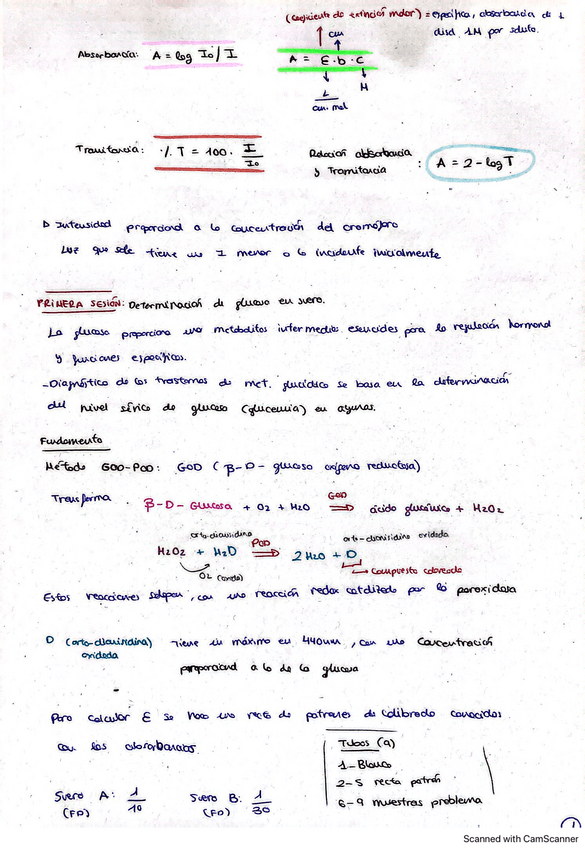 (coeficiente de extinción molar) = específica, absorbancia de 1
disol. 1M por soluto.
cm
Absorbancia: A = log Io/I
A = E·b·C
L
cm·mol
M
Tramitancia: ·/. T = 100 · I/Io
Relación absorbancia
y Tramitancia : A = 2 - log T
Intensidad proporcional a la concentración del cromóforo
Luz que sale tiene una I menor a la incidente inicialmente
PRIMERA SESIÓN: Determinación de glucosa en suero.
La glucosa proporciona uno metabolitos intermedios esenciales para la regulación hormonal
y funciones específicas.
- Diagnóstico de los trastornos de met. glucídico se basa en la determinación
del nivel sérico de glucosa (glucemia) en ayunas.
Fundamento
Método GOD-POD: GOD (β-D-glucosa oxígeno reductasa)
Transforma
β-D-Glucosa + O2 + H2O
GOD
⇒ ácido glucónico + H2O2
orto-dianisidina
POD
orto-dianisidina oxidada
H2O2 + H2D ⇒ 2H2O + D
O2
Compuesto coloreado
Estas reacciones solapan, con una reacción redox catalizada por la peroxidasa
D (orto-dianisidina) Tiene su máximo en 440nm, con una concentración
oxidada
proporcional a la de la glucosa
-
Para calcular E se hace una recta de patrones de calibrado conocidos
con las absorbancias.
Tubos (9)
1-Blanco
2-5 recta patrón
6-9 muestras problema
Suero A: 1/10
(FD)
Suero B: 1/30
(FD)
1
Scanned with CamScanner